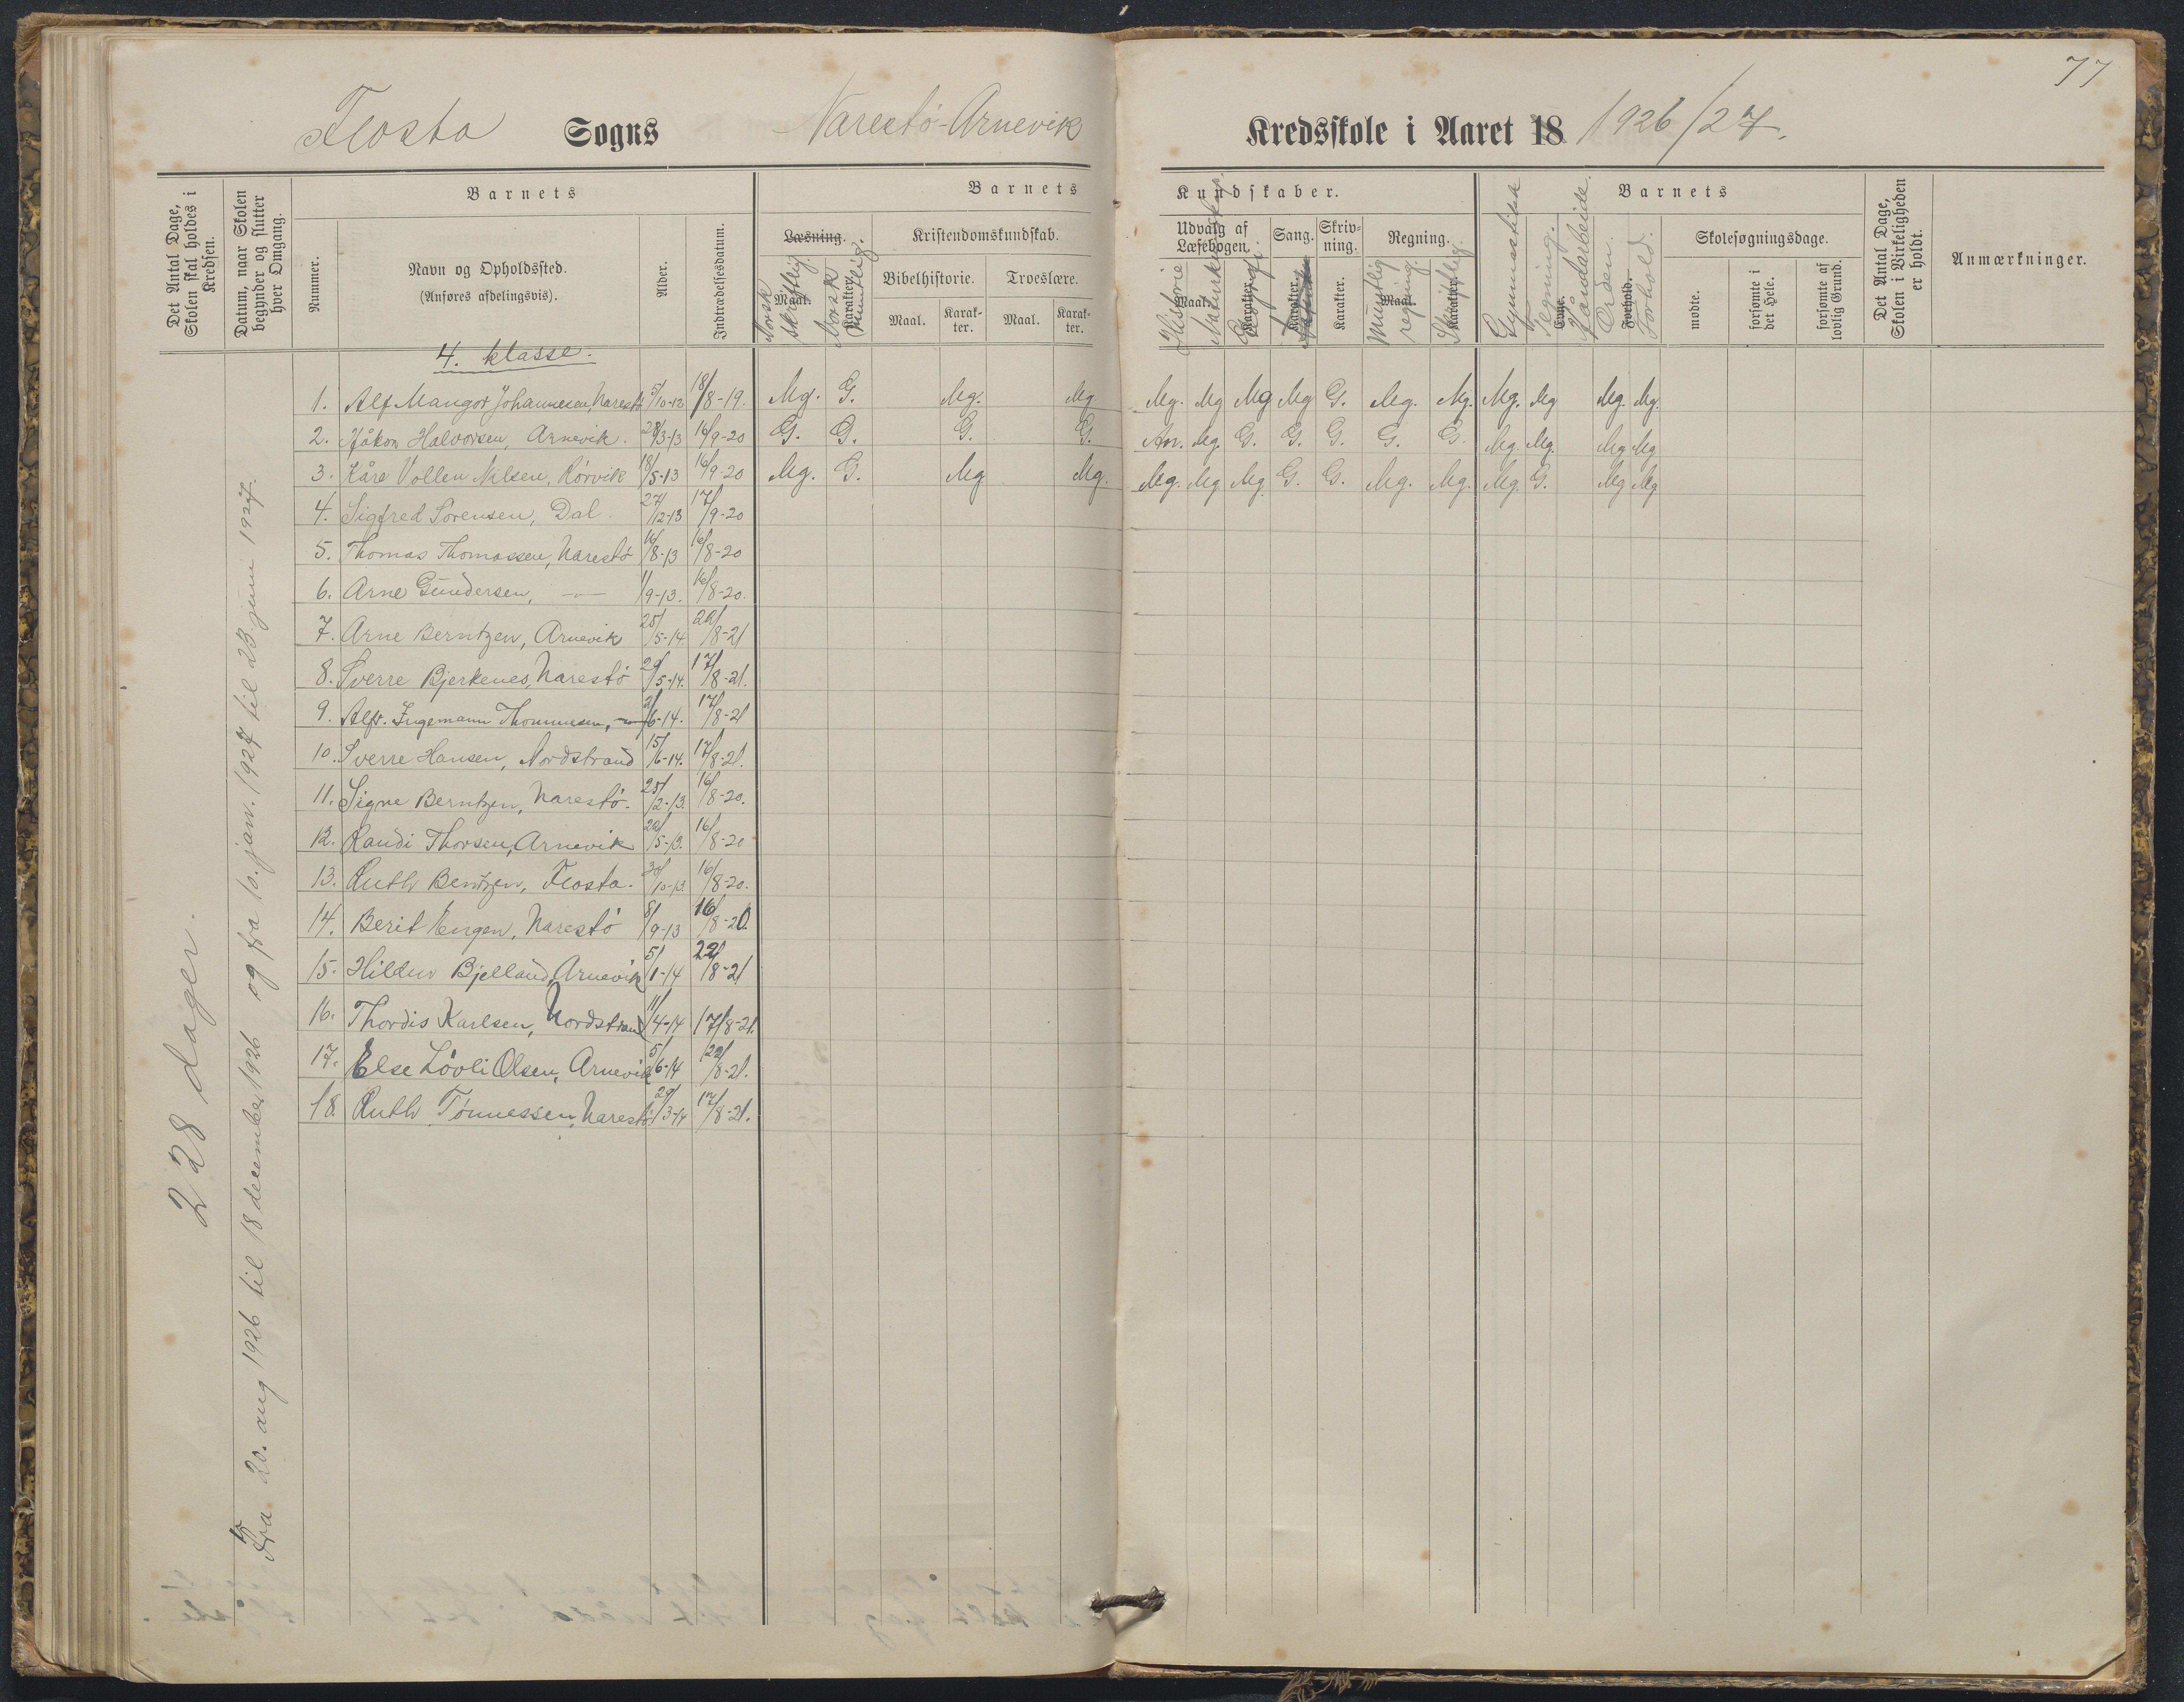 77
Flosta Sogns Narestö-Arnevik Kredsskole i Aaret 18 1926/27.
Det Antal Dage, Skolen skal holdes i Kredsen.
Datum, naar Skolen begynder og slutter hver Omgang.
Barnets
Nummer.
Navn og Opholdssted.
(Anføres afdelingsvis).
Alder.
Indtrædelsesdatum.
Barnets
Læsning.
Maal.
Karakter.
Norsk skriftlig.
Norsk muntlig.
Kristendomskundskab.
Bibelhistorie.
Troeslære.
Maal.
Karakter.
Maal.
Karakter.
Kundskaber.
Udvalg af Læsebogen.
Maal.
Karakter.
Historie
Naturkundskap.
Geografi.
Sang.
Karakter.
Skrivning.
Karakter.
Regning.
Maal.
Karakter.
Muntlig regning.
Skriftlig.
Barnets
Gymnastikk
Tegning.
Håndarbeide.
Orden.
Forhold.
Evne.
Forhold.
Skolesøgningsdage.
mødte.
forsømte i det Hele.
forsømte af lovlig Grund.
Det Antal Dage, Skolen i Virkeligheden er holdt.
Anmærkninger.
228 dager.
Fra 20. aug 1926 til 18 december 1926 og fra 10. jan. 1927 til 23 juni 1927.
4. klasse.
1. Alf Mangor Johannesen, Narestö 5/10-12 18/8-19. Mg. G. Mg. Mg Mg. Mg Mg Mg G. Mg. Mg. Mg. Mg Mg. Mg.
2. Håkon Halvorsen, Arnevik. 28/3-13 16/9-20 G. G. G. G. An. Mg. G. G. G. G. G. Mg. Mg. Mg Mg
3. Kåre Vollen Nilsen, Rörvik 18/5-13 16/9-20 Mg. G. Mg Mg. Mg. Mg Mg. G. G. Mg. Mg. Mg. G. Mg Mg
4. Sigfred Sörensen, Dal. 27/12-13 17/9-20
5. Thomas Thomassen, Narestö 16/8-13 16/8-20
6. Arne Gundersen, —"— 1/9-13. 16/8-20.
7. Arne Berntzen, Arnevik 25/5-14 22/8-21
8. Sverre Bjerkenes, Narestö 29/5-14. 17/8-21.
9. Alfr. Ingemann Thommesen, —"— 2/6-14. 17/8-21
10. Sverre Hansen, Nordstrand 15/6-14. 17/8-21.
11. Signe Berntzen, Narestö. 25/2-13. 16/8-20.
12. Randi Thorsen, Arnevik 22/5-13. 16/8-20
13. Ruth Bentzen, Flosta. 30/10-13. 16/8-20.
14. Berit Engen, Narestö 8/9-13 16/8-20.
15. Hildur Bjelland, Arnevik 5/1-14 22/8-21
16. Thordis Karlsen, Nordstrand 11/4-14 17/8-21.
17. Else Lövli Olsen, Arnevik 5/6-14 22/8-21.
18. Ruth Tönnessen, Narestö. 29/3-14 17/8-21.